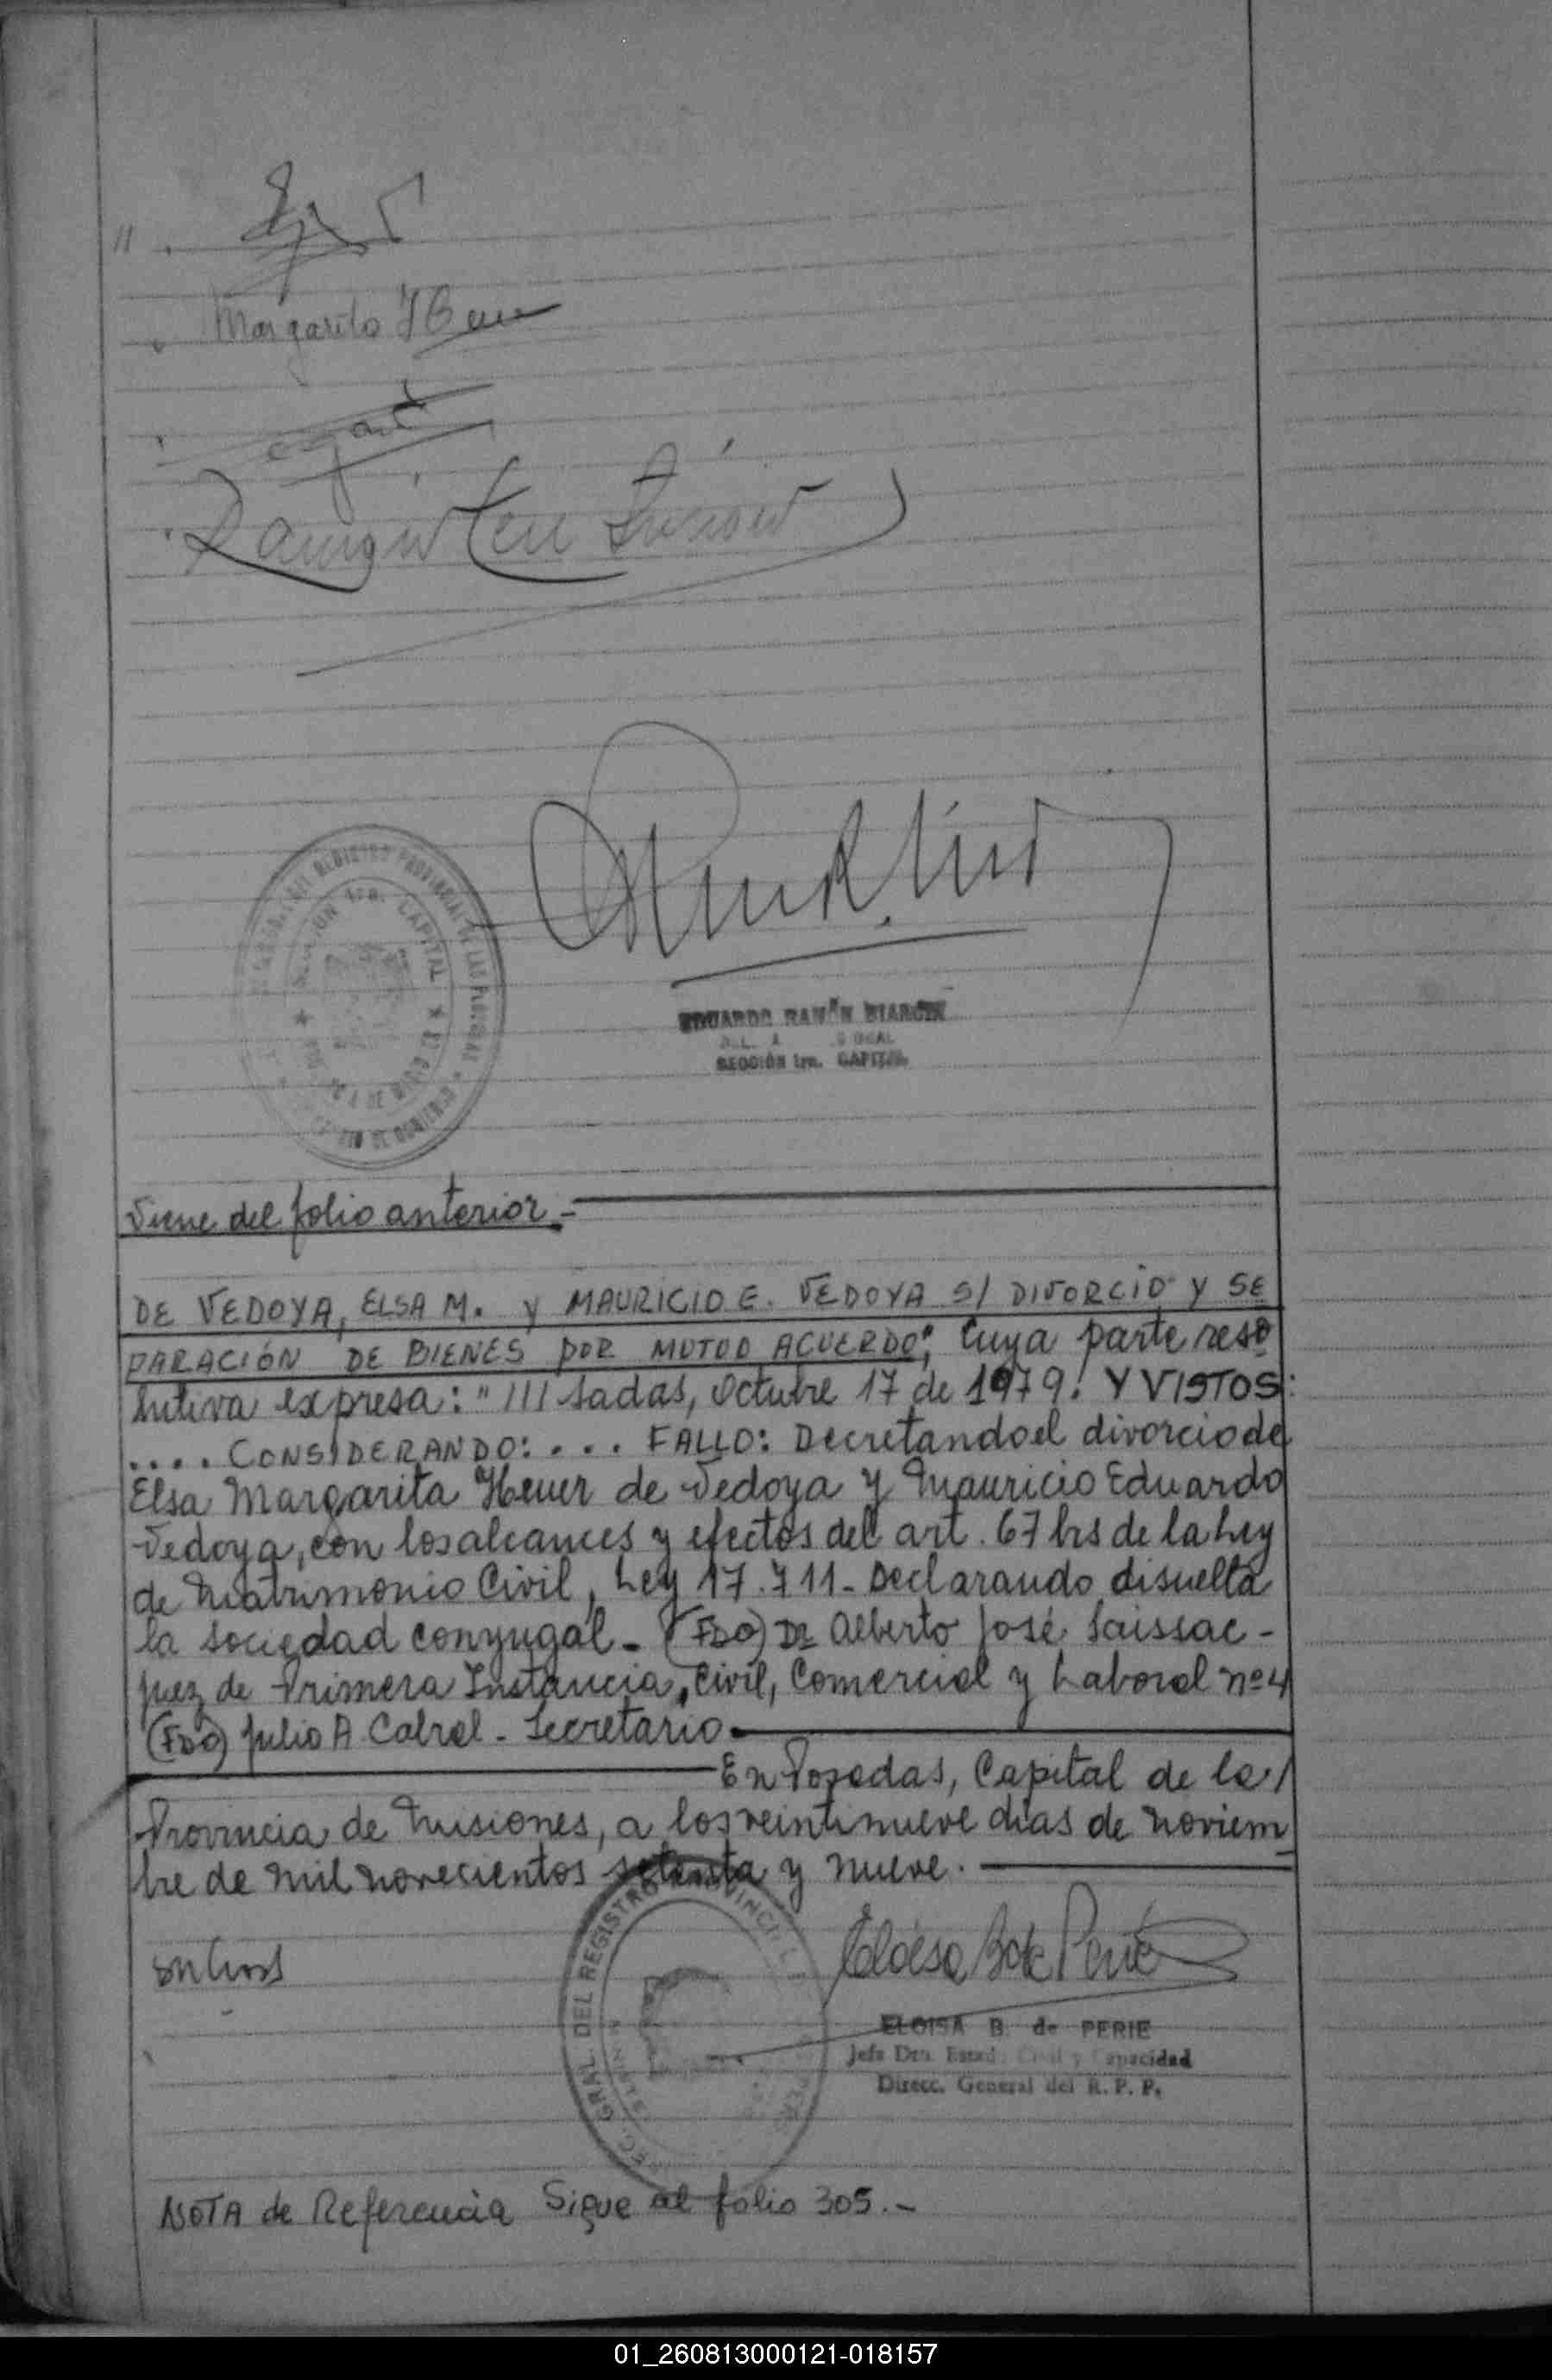 Margarita Heuer
EDUARDO RAMÓN BIANCHI
SECCIÓN 1ra. CAPITAL
Viene del folio anterior.-
DE VEDOYA, ELSA M. y MAURICIO E. VEDOYA S/ DIVORCIO Y SE
PARACIÓN DE BIENES POR MUTUO ACUERDO", Cuya parte reso
lutiva expresa: "///sadas, Octubre 17 de 1979. Y VISTOS:
.... CONSIDERANDO: ... FALLO: Decretando el divorcio de
Elsa Margarita Heuer de Vedoya y Mauricio Eduardo
Vedoya, con los alcances y efectos del art. 67 bis de la Ley
de Matrimonio Civil, Ley 17.711- Declarando disuelta
la sociedad conyugal.- (FDO) Dr Alberto José Saissac -
Juez de Primera Instancia, Civil, Comercial y Laboral nº 4
(FDO) Julio A. Cabral - Secretario.
En Posadas, Capital de la/
Provincia de Misiones, a los veintinueve días de noviem
bre de mil novecientos setenta y nueve.
Eloisa B de Perié
ELOISA B. de PERIE
Jefa Dto. Estado Civil y Capacidad
Direcc. General del R. P. P.
NOTA de Referencia Sigue al folio 305.-
01_260813000121-018157